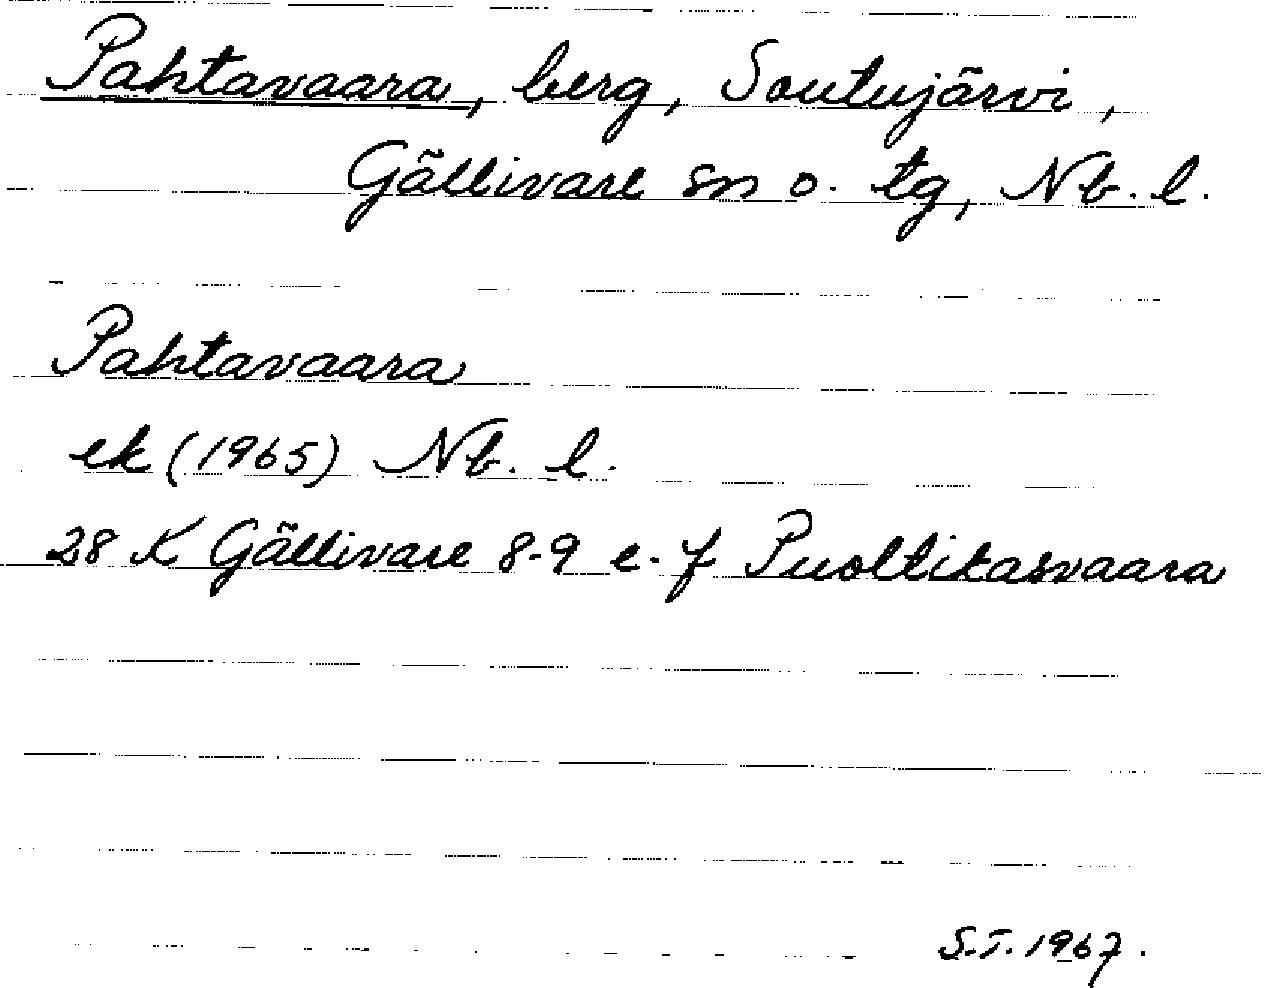 Pahtavaara, berg, Soutujärvi,
Gällivare sn o. tg, Nb. l.
Pahtavaara
ek (1965) Nb. l.
28 K Gällivare 8-9 e-f Puoltikasvaara
S.T. 1967.